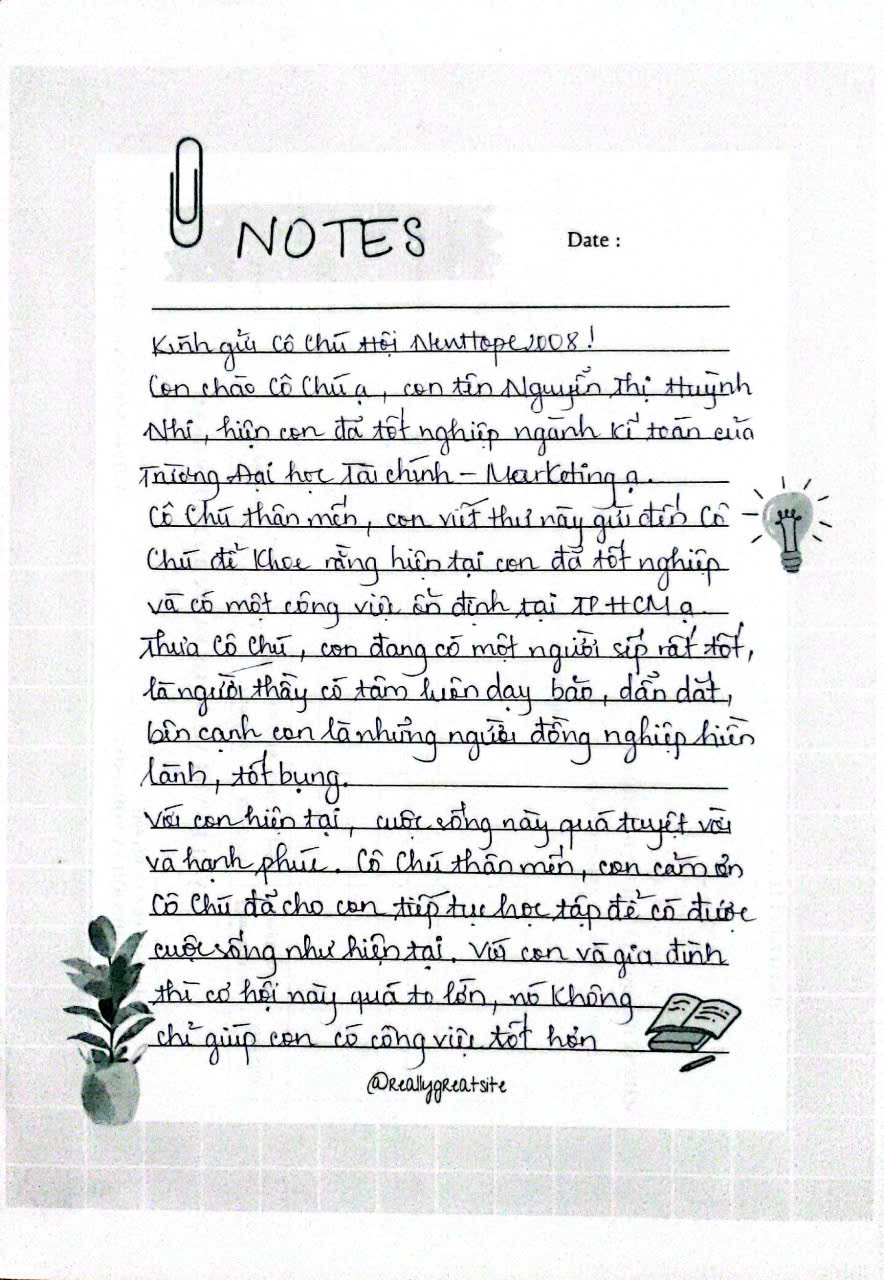 NOTES
Date :
Kính gửi Cô Chú Hội NewHope2008!
Con chào Cô Chú ạ, con tên Nguyễn Thị Huỳnh
Nhi, hiện con đã tốt nghiệp ngành Kế toán của
Trường Đại học Tài chính - Marketing ạ.
Cô Chú thân mến, con viết thư này gửi đến Cô
Chú để khoe rằng hiện tại con đã tốt nghiệp
và có một công việc ổn định tại TP.HCM ạ.
Thưa Cô Chú, con đang có một người sếp rất tốt,
là người thầy có tâm luôn dạy bảo, dẫn dắt,
bên cạnh con là những người đồng nghiệp hiền
lành, tốt bụng.
Với con hiện tại, cuộc sống này quá tuyệt vời
và hạnh phúc. Cô Chú thân mến, con cảm ơn
Cô Chú đã cho con tiếp tục học tập để có được
cuộc sống như hiện tại. Với con và gia đình
thì cơ hội này quá to lớn, nó không
chỉ giúp con có công việc tốt hơn
@reallygreatsite